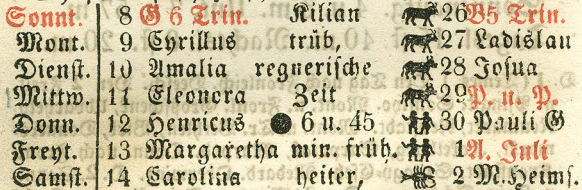 Sonnt. 8 G 6 Trin. Kilian 26 B5 Trin.
Mont. 9 Cyrillus trüb, 27 Ladislau
Dienst. 10 Amalia regnerische 28 Josua
Mittw. 11 Eleonora Zeit 29 P. u. P.
Donn. 12 Henricus ● 6 u. 45 30 Pauli G
Freyt. 13 Margaretha min. früh, 1 A. Juli
Samst. 14 Carolina heiter, 2 M. Heims.